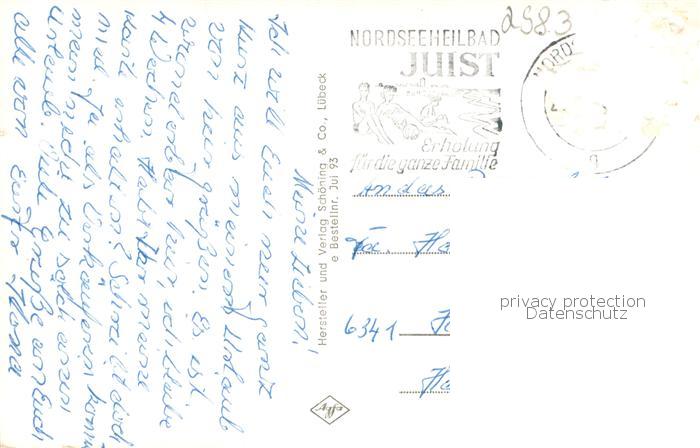 2983
NORDSEEHEILBAD
JUIST
Erholung
für die ganze Familie
NORD
Meine Lieben!
Ich will Euch nur ganz
kurz aus meinem Urlaub
von hier grüßen. Es ist
wunderbar hier, ich bleibe
4 Wochen. Habt Ihr meine
Karte erhalten? Schreibt doch
mal. Ja, als Verkäuferin kommt
man nicht zu solch einem
Urlaub. Viele Grüße an Euch
alle von Eurer
Hersteller und Verlag Schöning & Co., Lübeck
e Bestellnr. Jui 93
An das
Fa. Ha
6341
Ha
Agfa
privacy protection
Datenschutz